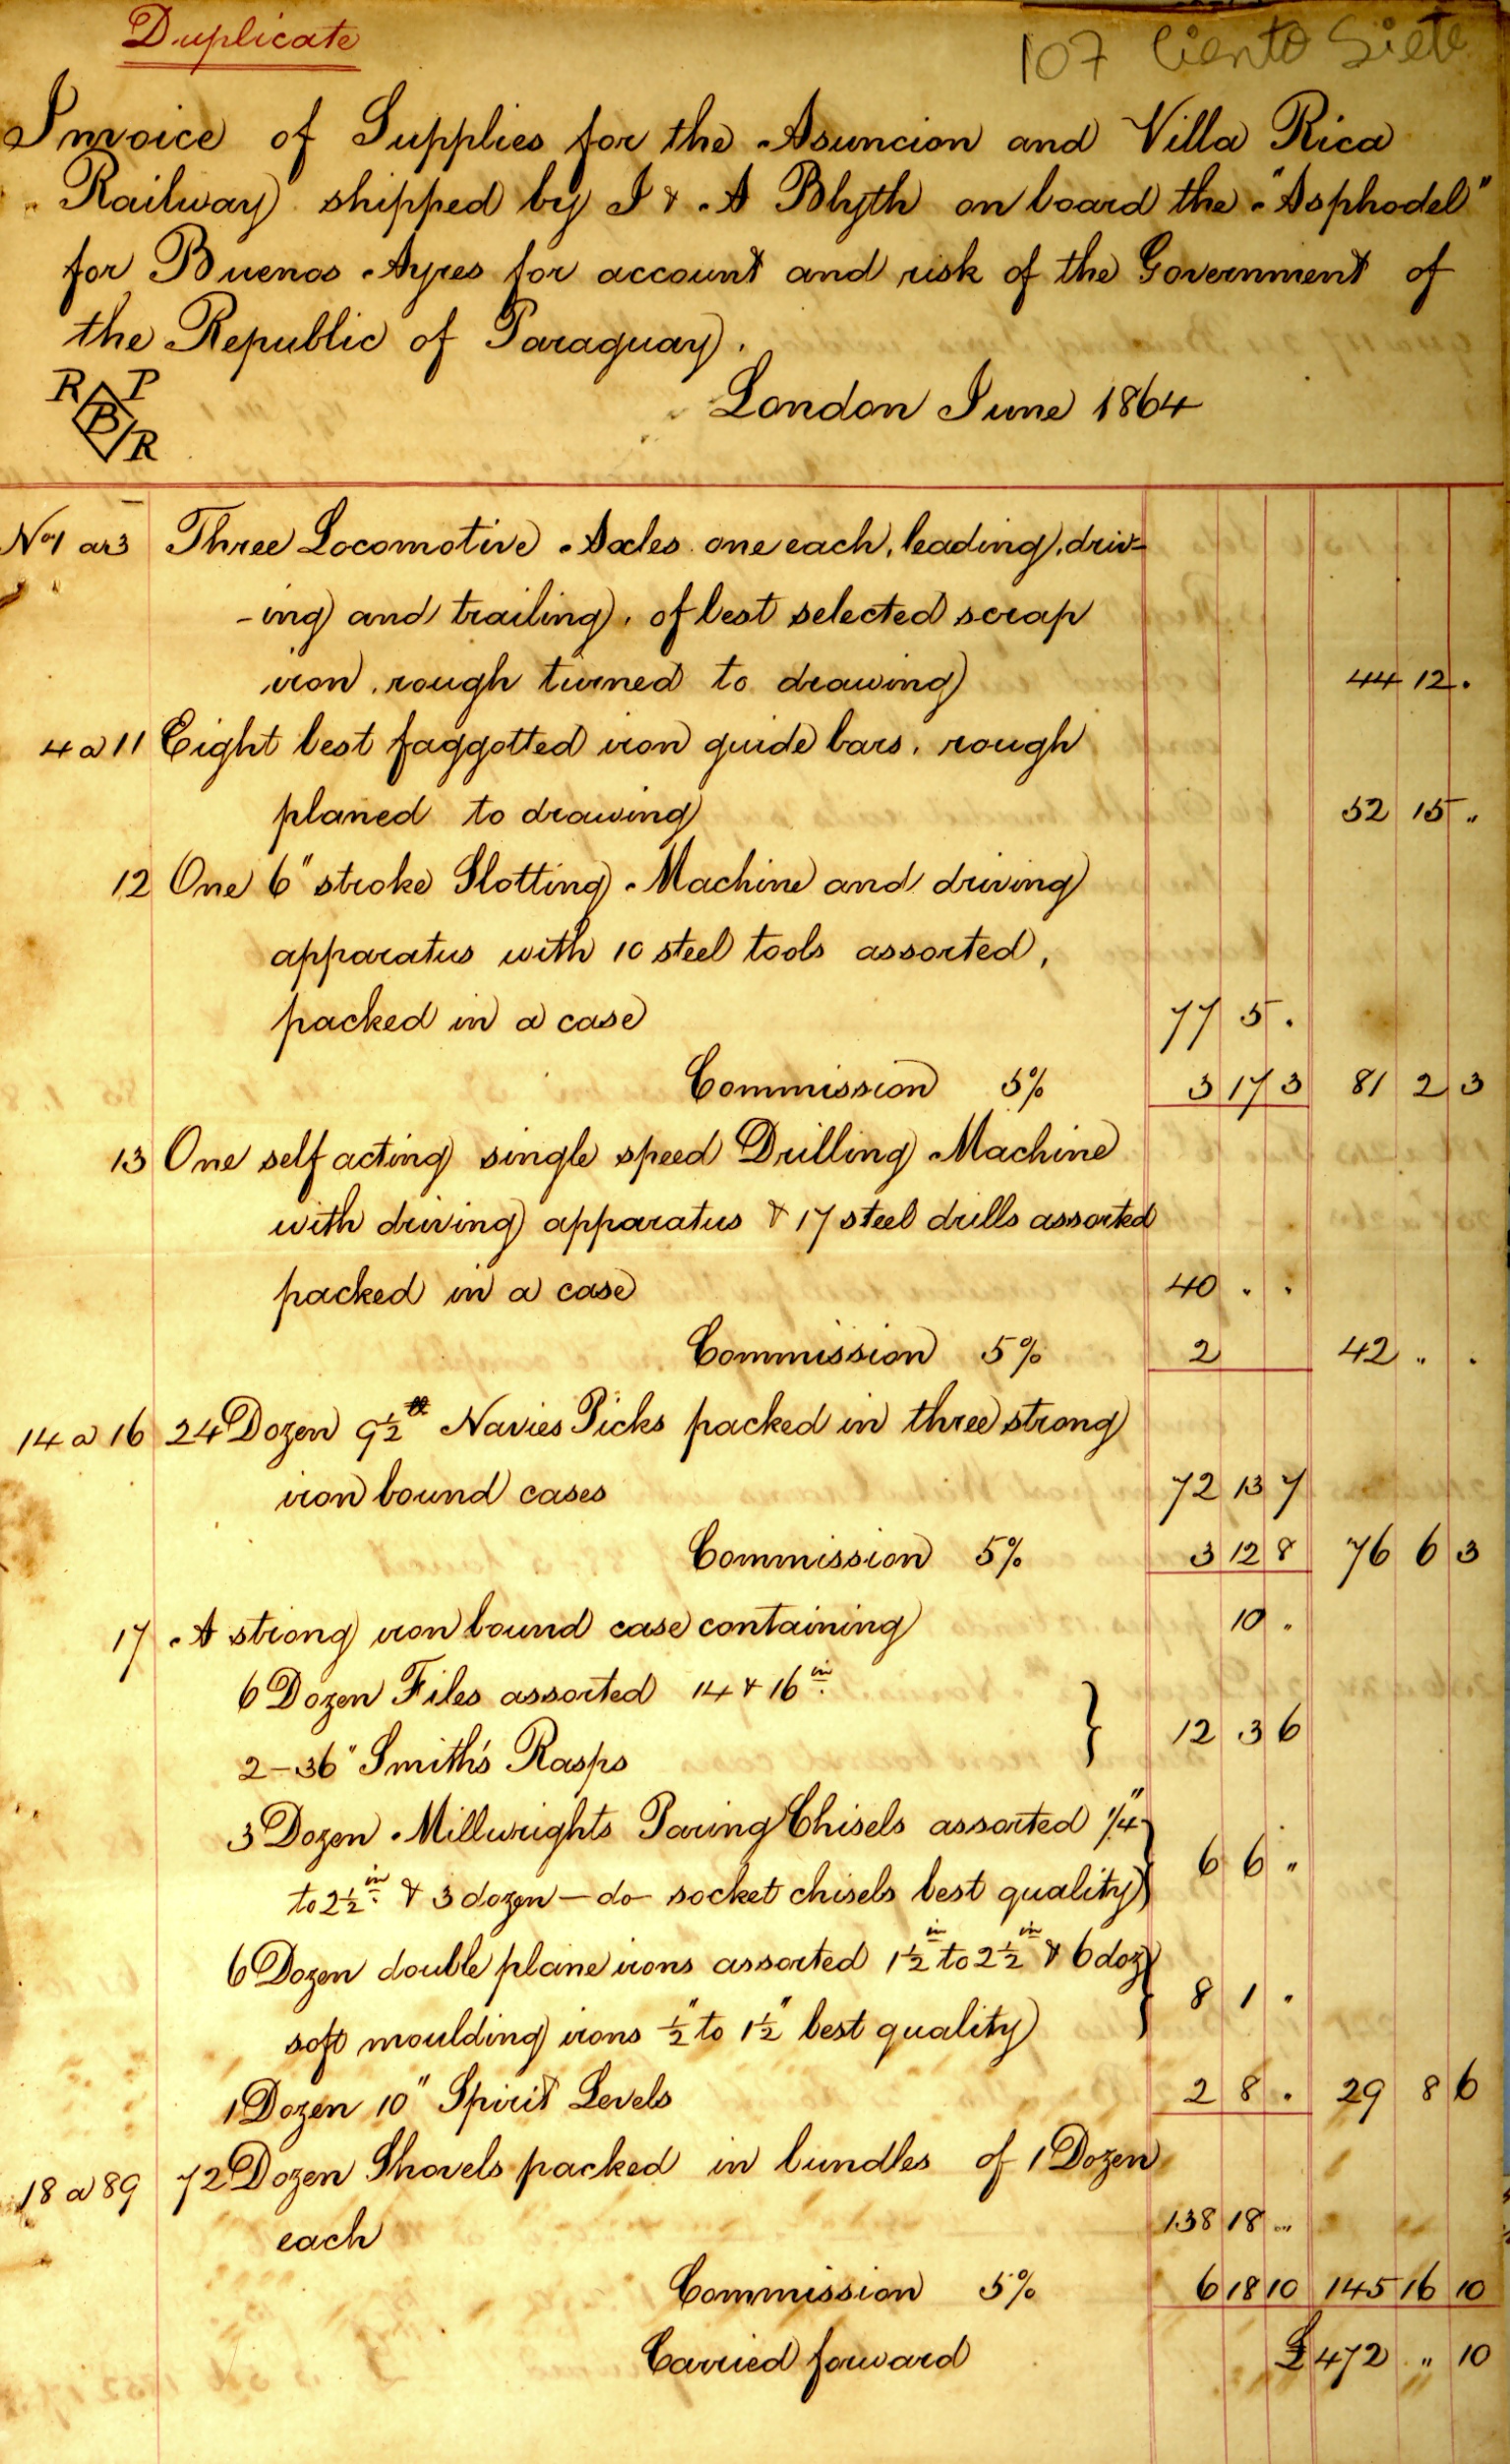 Duplicate
107 Ciento Siete
Invoice of Supplies for the Asuncion and Villa Rica
Railway shipped by J & A Blyth on board the "Asphodel"
for Buenos Ayres for account and risk of the Government of
the Republic of Paraguay.
R P
B R
London June 1864
No 1 a 3 Three Locomotive Axles one each, leading, driv-
-ing and trailing, of best selected scrap
iron, rough turned to drawing 44 12 .
4 a 11 Eight best faggotted iron guide bars, rough
planed to drawing 52 15 "
12 One 6" stroke Slotting Machine and driving
apparatus with 10 steel tools assorted,
packed in a case 77 5 .
Commission 5% 3 17 3 81 2 3
13 One self acting single speed Drilling Machine
with driving apparatus & 17 steel drills assorted
packed in a case 40 . .
Commission 5% 2 42 " .
14 a 16 24 Dozen 9½ lb Navies Picks packed in three strong
iron bound cases 72 13 7
Commission 5% 3 12 8 76 6 3
17 A strong iron bound case containing 10 .
6 Dozen Files assorted 14 & 16 in
2 – 36" Smith's Rasps } 12 3 6
3 Dozen Millwrights Paring Chisels assorted 1/4"
to 2½ in & 3 dozen – do – socket chisels best quality } 6 6 "
6 Dozen double plane irons assorted 1½ in to 2½ in & 6 doz
soft moulding irons ½" to 1½" best quality } 8 1 .
1 Dozen 10" Spirit Levels 2 8 . 29 8 6
18 a 89 72 Dozen Shovels packed in bundles of 1 Dozen
each 138 18 "
Commission 5% 6 18 10 145 16 10
Carried forward £472 " 10